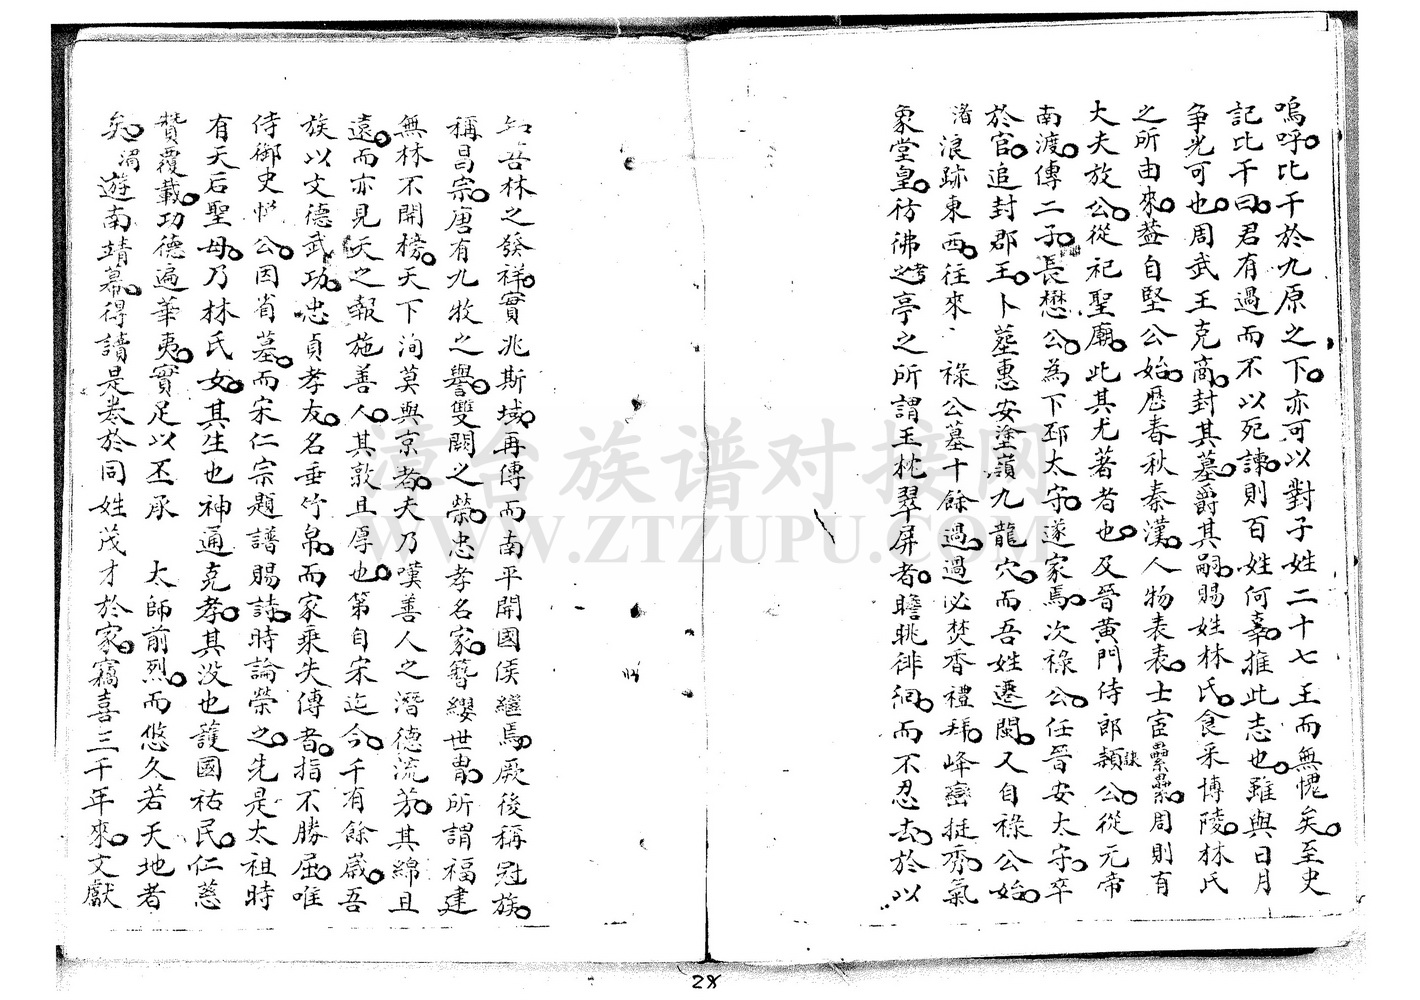 嗚呼比干於九原之下亦可以對子姓二十七王而無愧矣至史
記比干曰君有過而不以死諫則百姓何辜推此志也雖與日月
争光可也周武王克商封其墓爵其嗣賜姓林氏食采博陵林氏
之所由來蓋自堅公始歷春秋秦漢人物表表士宦纍纍周則有
大夫放公從祀聖廟此其尤著者也及晉黄門侍郎頴公從元帝
南渡傳二子長懋公為下邳太守遂家焉次禄公任晉安太守卒
於官追封郡王卜塟惠安塗嶺九龍穴而吾姓遷閩又自禄公始
渚浪跡東西往來 禄公墓十餘過過必焚香禮拜峰巒挺秀氣
象堂皇彷彿考之亭之所謂玉枕翠屏者瞻眺徘徊而不忍去於以
知吾林之發祥實兆斯域再傳而南平開國侯繼焉厥後稱冠族
稱昌宗唐有九牧之譽雙闕之榮忠孝名家簪纓世冑所謂福建
無林不開榜天下洵莫與京者夫乃嘆善人之潛德流芳其綿且
遠而亦見天之報施善人其敦且厚也第自宋迄今千有餘歲吾
族以文德武功忠貞孝友名垂竹帛而家乘失傳者指不勝屈唯
侍御史悦公因省墓而宋仁宗題譜賜詩時論榮之先是太祖時
有天后聖母乃林氏女其生也神通克孝其没也護國祐民仁慈
贊覆載功德遍華夷實足以丕承 太師前烈而悠久若天地者
矣渚遊南靖幕得讀是卷於同姓茂才於家竊喜三千年來文獻
漳台族谱对接网
WWW.ZTZUPU.COM
28